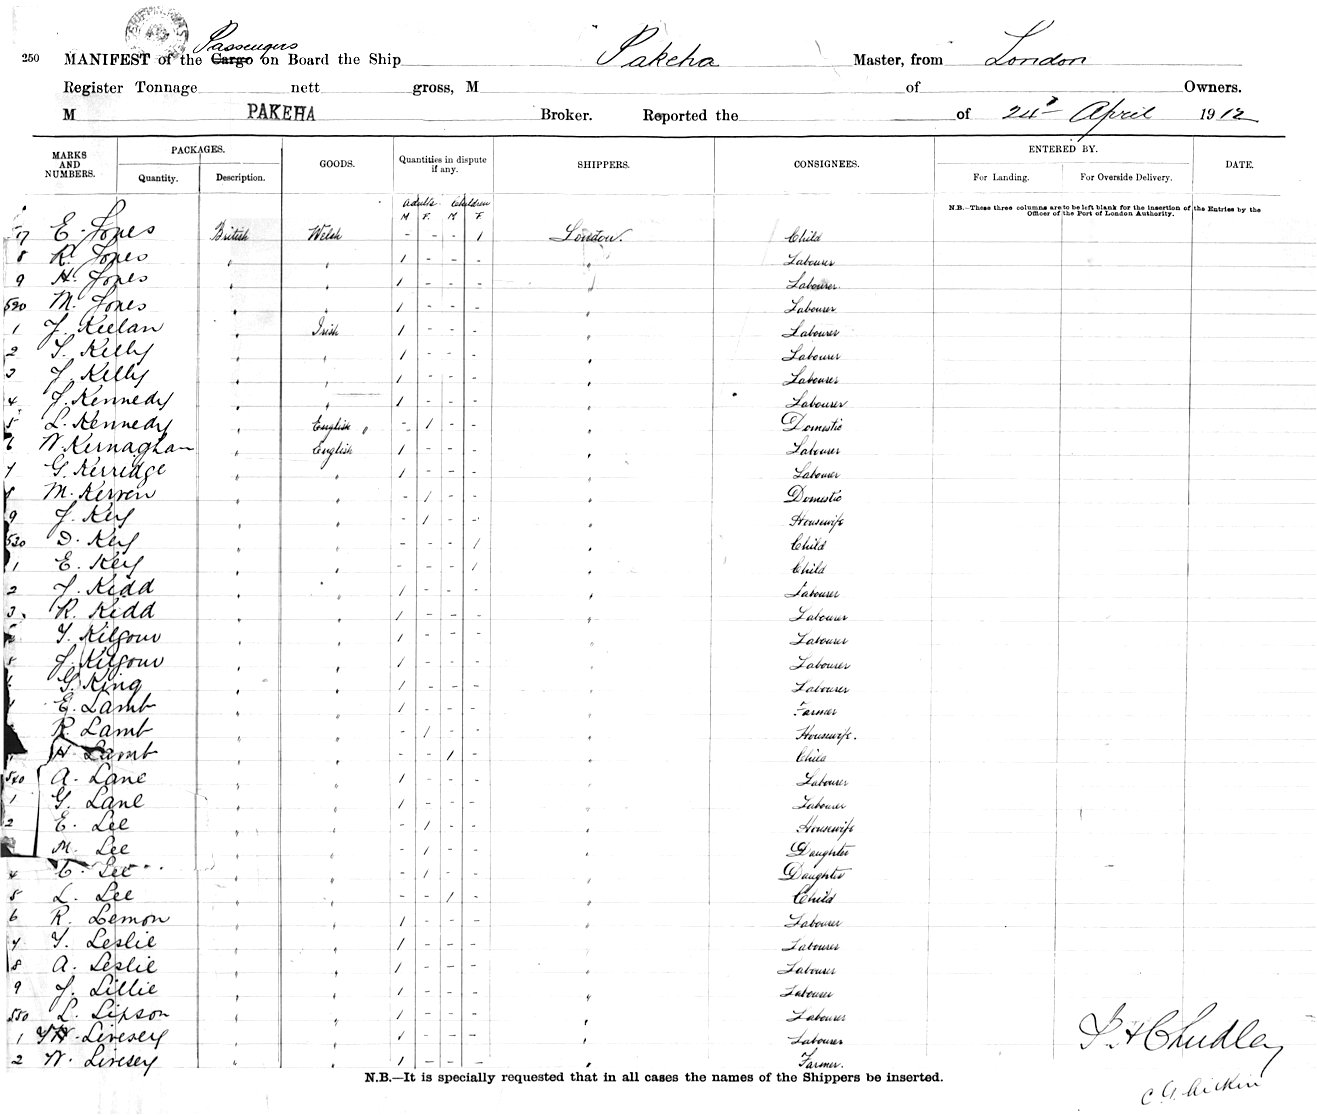 Passengers
250 MANIFEST of the Cargo on Board the Ship Pakeha Master, from London
Register Tonnage nett gross, M of Owners.
M PAKEHA Broker. Reported the of 24th April 1912
MARKS AND NUMBERS. PACKAGES. Quantity. Description. GOODS. Quantities in dispute if any. SHIPPERS. CONSIGNEES. ENTERED BY. For Landing. For Overside Delivery. DATE.
N.B.—These three columns are to be left blank for the insertion of the Entries by the
Officer of the Port of London Authority.
Adults Children
M F. M F.
17 E. Jones British Welsh - - - 1 London. Child
8 R. Jones " " 1 - - - " Labourer
9 H. Jones " " 1 - - - " Labourer
520 M. Jones " " 1 - - - " Labourer
1 J. Keelan " Irish 1 - - - " Labourer
2 T. Kelly " " 1 - - - " Labourer
3 J. Kelly " " 1 - - - " Labourer
4 J. Kennedy " " 1 - - - " Labourer
5 L. Kennedy " English " - 1 - - " Domestic
6 W. Kernaghan " English 1 - - - " Labourer
7 G. Kerridge " " 1 - - - " Labourer
8 M. Kerven " " - 1 - - " Domestic
9 J. Key " " - 1 - - " Housewife
530 D. Key " " - - - 1 " Child
1 E. Key " " - - - 1 " Child
2 J. Kidd " " 1 - - - " Labourer
3 R. Kidd " " 1 - - - " Labourer
T. Kilgour " " 1 - - - " Labourer
5 J. Kilgour " " 1 - - - " Labourer
G. King " " 1 - - - " Labourer
E. Lamb " " 1 - - - " Farmer
R. Lamb " " - 1 - - " Housewife.
H. Lamb " " - - 1 - " Child
540 A. Lane " " 1 - - - " Labourer
1 G. Lane " " 1 - - - " Labourer
2 E. Lee " " - 1 - - " Housewife
M. Lee " " - 1 - - " Daughter
4 Lee " " - 1 - - " Daughter
5 L. Lee " " - - 1 - " Child
6 R. Lemon " " 1 - - - " Labourer
7 T. Leslie " " 1 - - - " Labourer
8 A. Leslie " " 1 - - - " Labourer
9 J. Lillie " " 1 - - - " Labourer
550 L. Lipson " " 1 - - - " Labourer
1 Livesey " " 1 - - - " Labourer
2 W. Livesey " " 1 - - - " Farmer.
Chudley
C. G. Aitkin
N.B.—It is specially requested that in all cases the names of the Shippers be inserted.